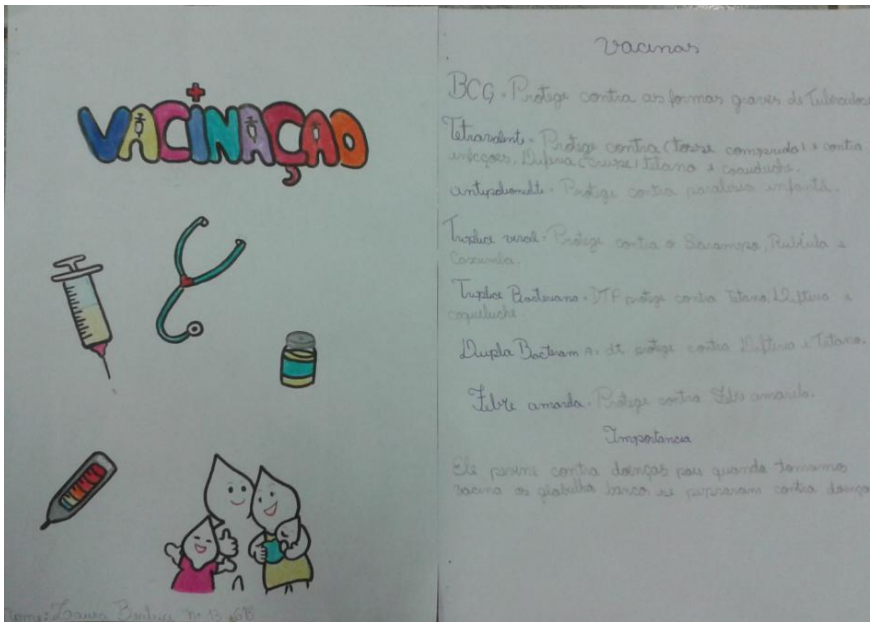 VACINAÇAO
Vacinas
BCG - Protege contra as formas graves de Tuberculose
Tetravalente - Protege contra (tosse comprida) e contra
infecções, Difteria (crupe) Tetano e coqueluche.
Protege contra paralisia infantil.
Triplice viral - Protege contra o Sarampo, Rubéula e
Caxumba.
Triplice Bacteriano - DTP protege contra Tetano, Difteria e
coqueluche.
Dupla dt protege contra Difteria e Tetano.
Febre amarela - Protege contra Febre amarela.
Importancia
Ele contra doenças pois quando tomamos
vacina os contra doença
Nome: nº 13 6B